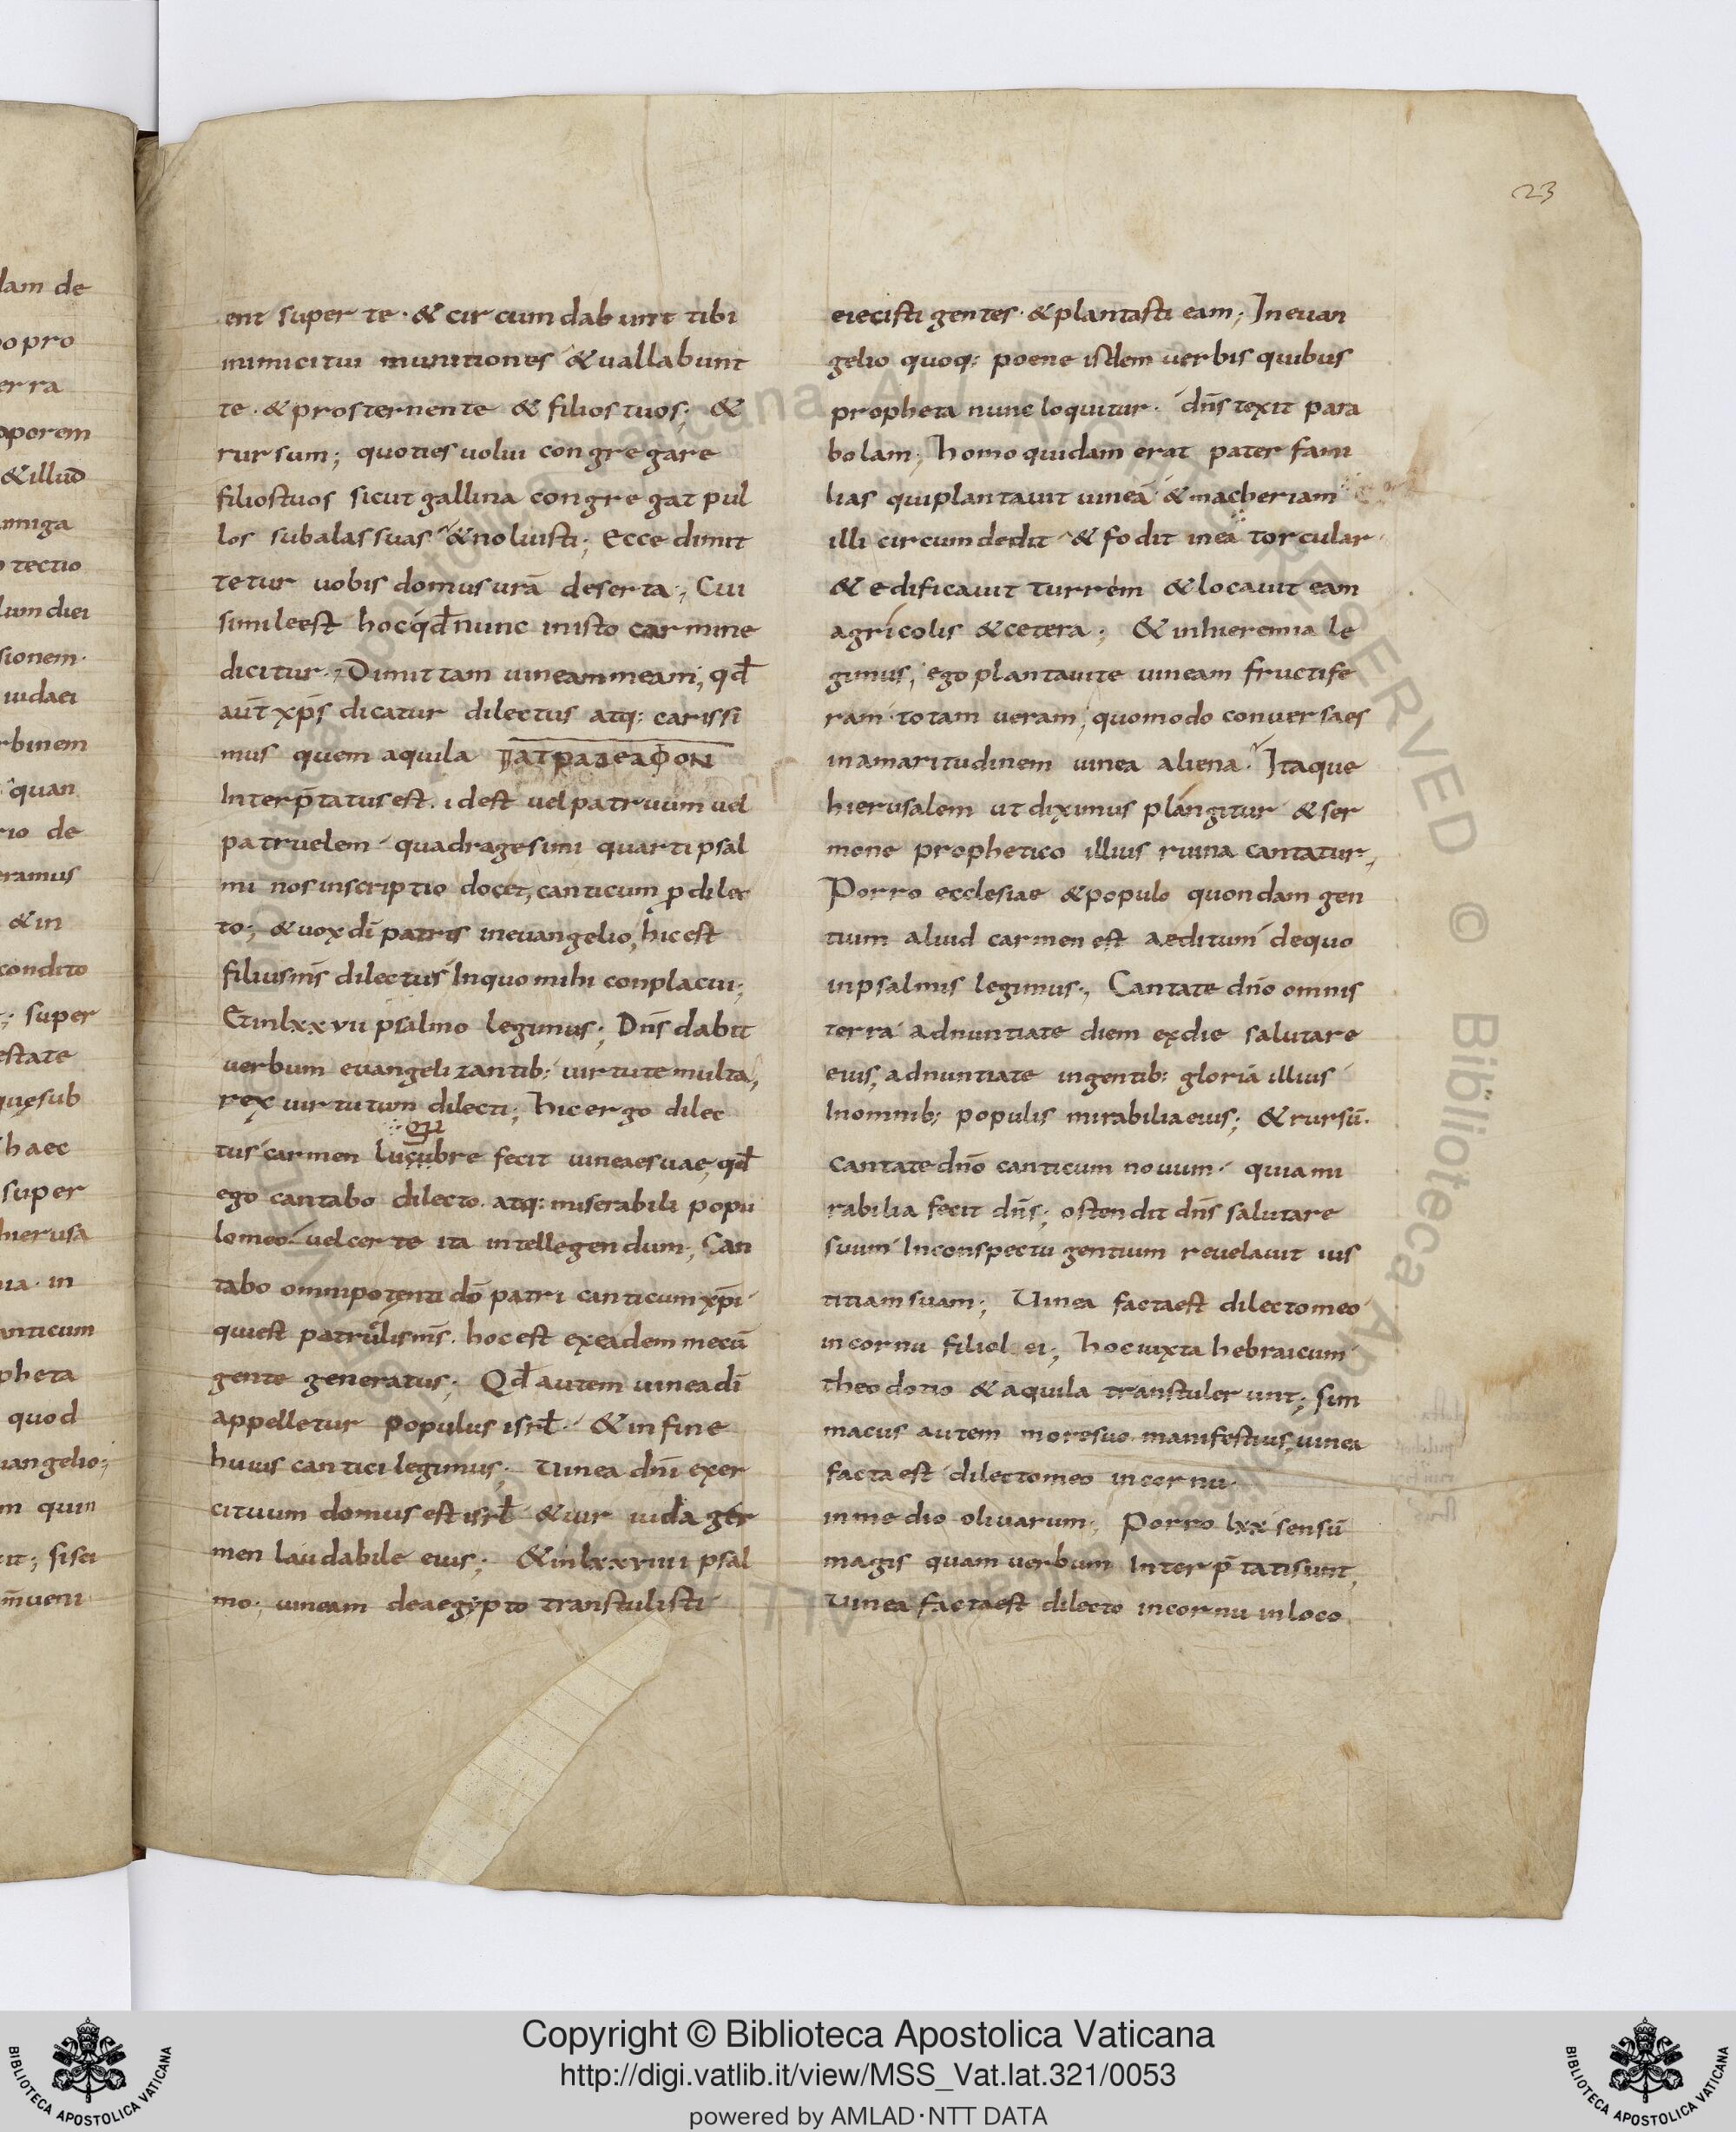 lam de
o pro
erra
operem
& illud
amiga
tectio
lum diei
sionem·
iudaei
rbinem
quan
rio de
eramus
& in
condito
; super
estate
quęsub
haec
super
hierusa
ia· in
anticum
pheta
quod
uangelio;
m quin
it; si sei
m̄ueni
23
ent super te· & circumdabunt tibi
inimici tui munitiones & uallabunt
te· & prosternen te & filios tuos; &
rursum; quoties uolui congregare
filios tuos sicut gallina congregat pul
los sub alas suas & noluisti; Ecce dimit
tetur uobis domus urā deserta; Cui
simile est hoc qđ nunc in isto carmine
dicitur; Dimittam uineam meam; qđ
aūt xp̄s dicatur dilectus atq: carissi
mus quem aquila ΠΑΤΡΑΔΕΛΦΟΝ
Interp̄tatus est· id est uel patruum uel
patruelem quadragesimi quarti psal
mi nos inscriptio docet, canticum ꝓ dilec
to; & uox dī patris in euangelio, hic est
filius m̄s dilectus In quo mihi conplacui;
Et in lxxvii psalmo legimus; Dn̄s dabit
uerbum euangelizantib: uirtute multa,
rex uirtutum dilecti; hic ergo dilec
tus carmen lucubre fecit uineae suae, qđ
ego cantabo dilecto· atq: miserabili popu
lo meo· uel certe ita intellegendum; Can
tabo omnipotenti dō patri canticum xp̄i
qui est patruelis m̄s· hoc est ex eadem mecū
gente generatus; Qđ autem uinea dī
appelletur populus isrł· & in fine
huius cantici legimus; Uinea dn̄i exer
cituum domus est isrł & uir iuda ger
men laudabile eius; & in lxxviiii psal
mo; uineam de aegypto transtulisti
eiecisti gentes· & plantasti eam; In euan
gelio quoq: poene isdem uerbis quibus
propheta nunc loquitur· dn̄s texit para
bolam; homo quidam erat pater fami
lias qui plantauit uineā & macheriam
illi circumdedit & fodit in ea torcular
& edificauit turrem & locauit eam
agricolis & cetera; & in hieremia le
gimus; ego plantaui te uineam fructife
ram· totam ueram; quomodo conuersa es
in amaritudinem uinea aliena· Itaque
hierusalem ut diximus plangitur & ser
mone prophetico illius ruina cantatur;
Porro ecclesiae & populo quondam gen
tium aliud carmen est aeditum de quo
in psalmis legimus; Cantate dn̄o omnis
terra adnuntiate diem ex die salutare
eius, adnuntiate in gentib: gloriā illius
In omnib; populis mirabilia eius; & rursū·
cantate dn̄o canticum nouum· quia mi
rabilia fecit dn̄s; ostendit dn̄s salutare
suum In conspectu gentium reuelauit ius
titiam suam; Uinea facta est dilecto meo
in cornu filiol ei; hoc iuxta hebraicum
theodotio & aquila transtulerunt; sim
macus autem more suo manifestius, uinea
facta est dilecto meo in cornu·
in medio oliuarum; Porro lxx sensū
magis quam uerbum Interp̄tati sunt,
Uinea facta est dilecto in cornu in loco
Copyright © Biblioteca Apostolica Vaticana
http://digi.vatlib.it/view/MSS_Vat.lat.321/0053
powered by AMLAD·NTT DATA
BIBLIOTECA APOSTOLICA VATICANA
BIBLIOTECA APOSTOLICA VATICANA